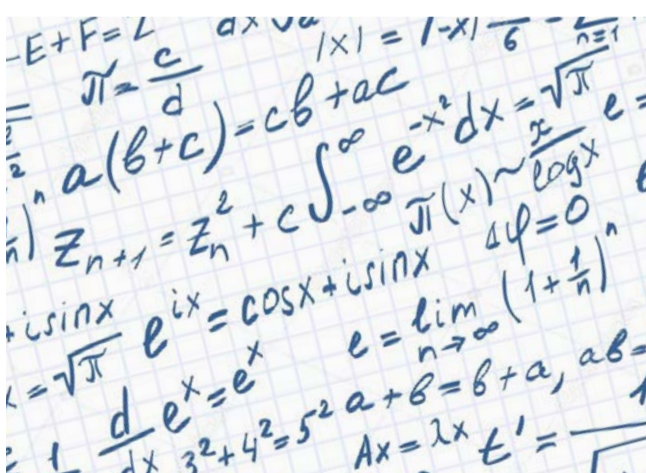 -E+F=2
|x| = |-x|
6
n=1
π = c/d
a(b+c)=cb+ac
∫_{-∞}^{∞} e^{-x²}dx = √π
e =
z_{n+1} = z_n² + c
π(x) ~ x/log x
Δφ=0
+isinx
e^{ix} = cosx+isinx
= √π
e = lim_{n→∞} (1+1/n)^n
d/dx e^x = e^x
3²+4²=5²
a+b=b+a, ab=
Ax = λx
t' =